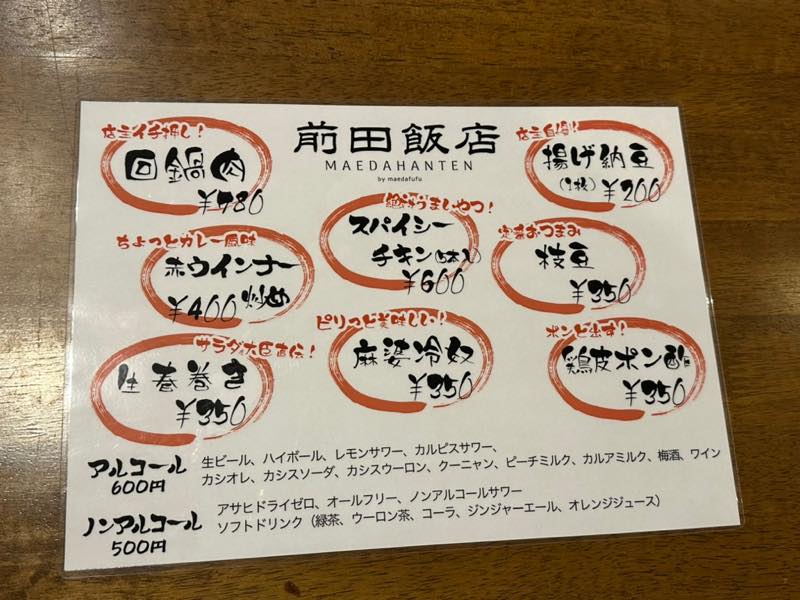 前田飯店
MAEDAHANTEN
by maedafufu
店主イチ押し!
回鍋肉
¥780
店主自慢!
揚げ納豆
(1枚) ¥200
絶対うまいやつ!
スパイシー
チキン(5本入)
¥600
ちょっとカレー風味
赤ウインナー
炒め
¥400
定番おつまみ
枝豆
¥350
サラダ大臣直伝!
生春巻き
¥350
ピリっと美味しい!
麻婆冷奴
¥350
ポンと出す!
鶏皮ポン酢
¥350
アルコール
600円
生ビール、ハイボール、レモンサワー、カルピスサワー、
カシオレ、カシスソーダ、カシスウーロン、クーニャン、ピーチミルク、カルアミルク、梅酒、ワイン
ノンアルコール
500円
アサヒドライゼロ、オールフリー、ノンアルコールサワー
ソフトドリンク（緑茶、ウーロン茶、コーラ、ジンジャーエール、オレンジジュース）